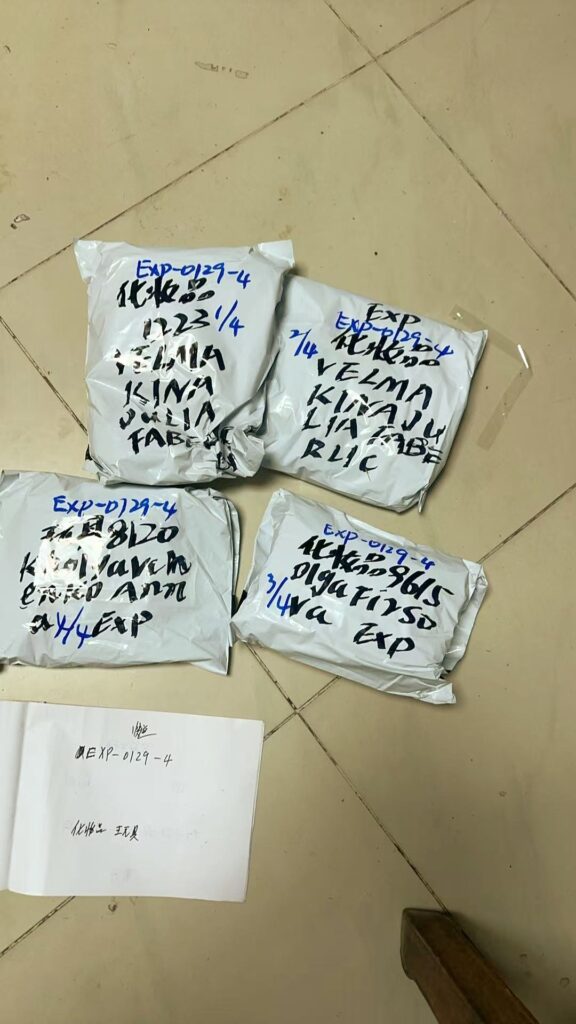 EXP-0129-4
化妆品
1223 1/4
VELMA
KINA
JULIA
FABE
Exp
EXP-0129-4
2/4 化妆品
VELMA
KINAJU
LIA FABE
RLIC
EXP-0129-4
玩具8120
Ann
4/4 EXP
EXP-0129-4
化妆品9615
Olga Firso
3/4 va Exp
EXP-0129-4
化妆品 玩具